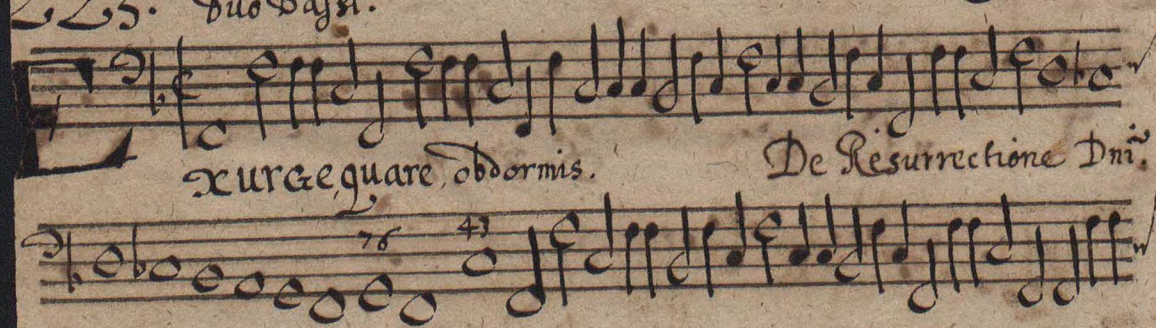 Duo Bassi.
Exurge quare obdormis. De Resurrectione Dni.
76 43